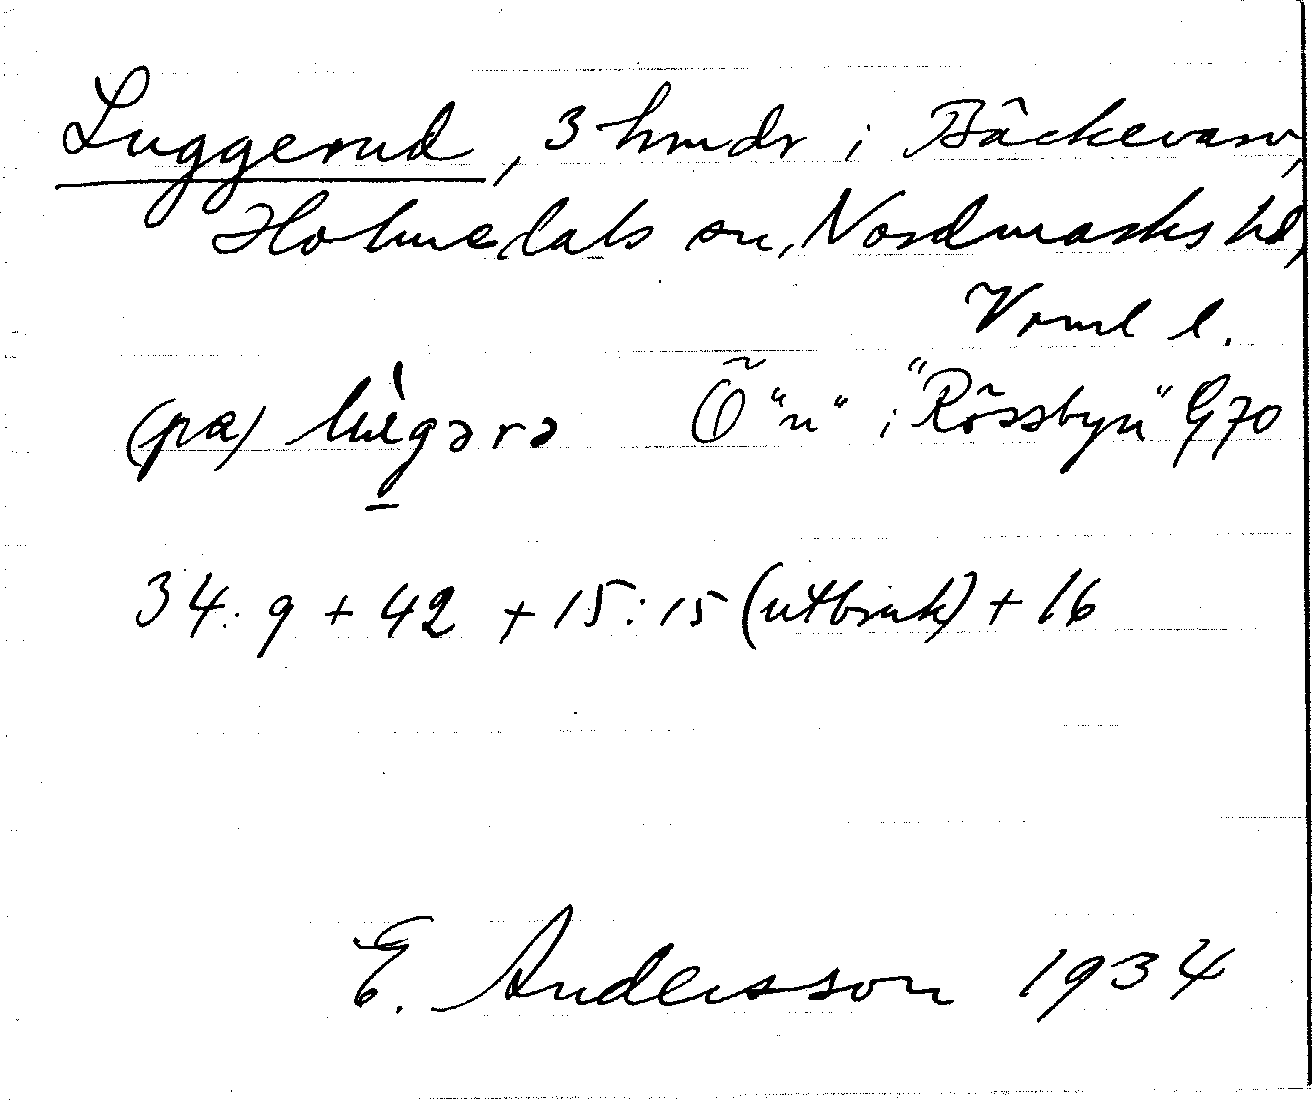 Luggerud, 3 hmdr i Bäckevarv,
Holmedals sn, Nordmarks hd,
Vrml l.
(pa) Ö "n" i "Rössbyn" G70
34: 9 + 42 + 15: 15 (utbruk) + 16
E. Andersson 1934